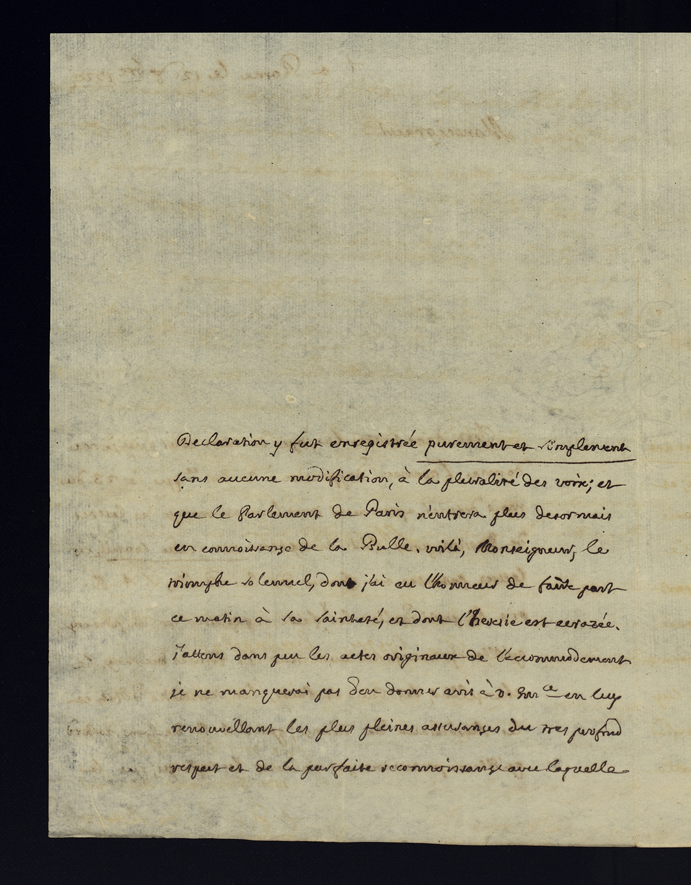 Declaration y fut enregistrée purement et simplement
sans aucune modification, à la pluralité des voix; et
que le Parlement de Paris n'entrera plus desormais
en connoissance de la Bulle. voilà, Monseigneur, le
triomphe solennel, dont j'ai eu l'honneur de faire part
ce matin à sa sainteté, et dont l'heresie est ecrazée.
j'attens dans peu les actes originaux de l'accommodement
je ne manquerai pas d'en donner avis à v. Em.ce en luy
renouvellant les plus pleines assurances du tres profond
respect et de la parfaite reconnoissance avec laquelle